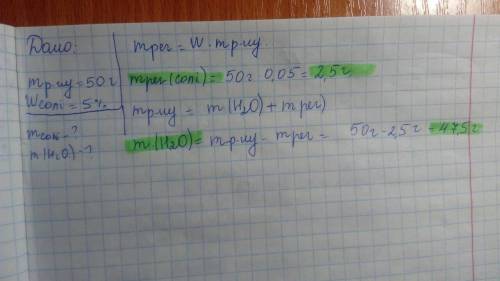 Дано:
m р-ну = 50 г
Wсолі = 5%
mсолі - ?
m(H₂O) - ?
m реч = W · m р-ну.
m реч (солі) = 50г · 0,05 = 2,5г
m р-ну = m(H₂O) + m реч)
m(H₂O) = m р-ну - m реч = 50г - 2,5г = 47,5г